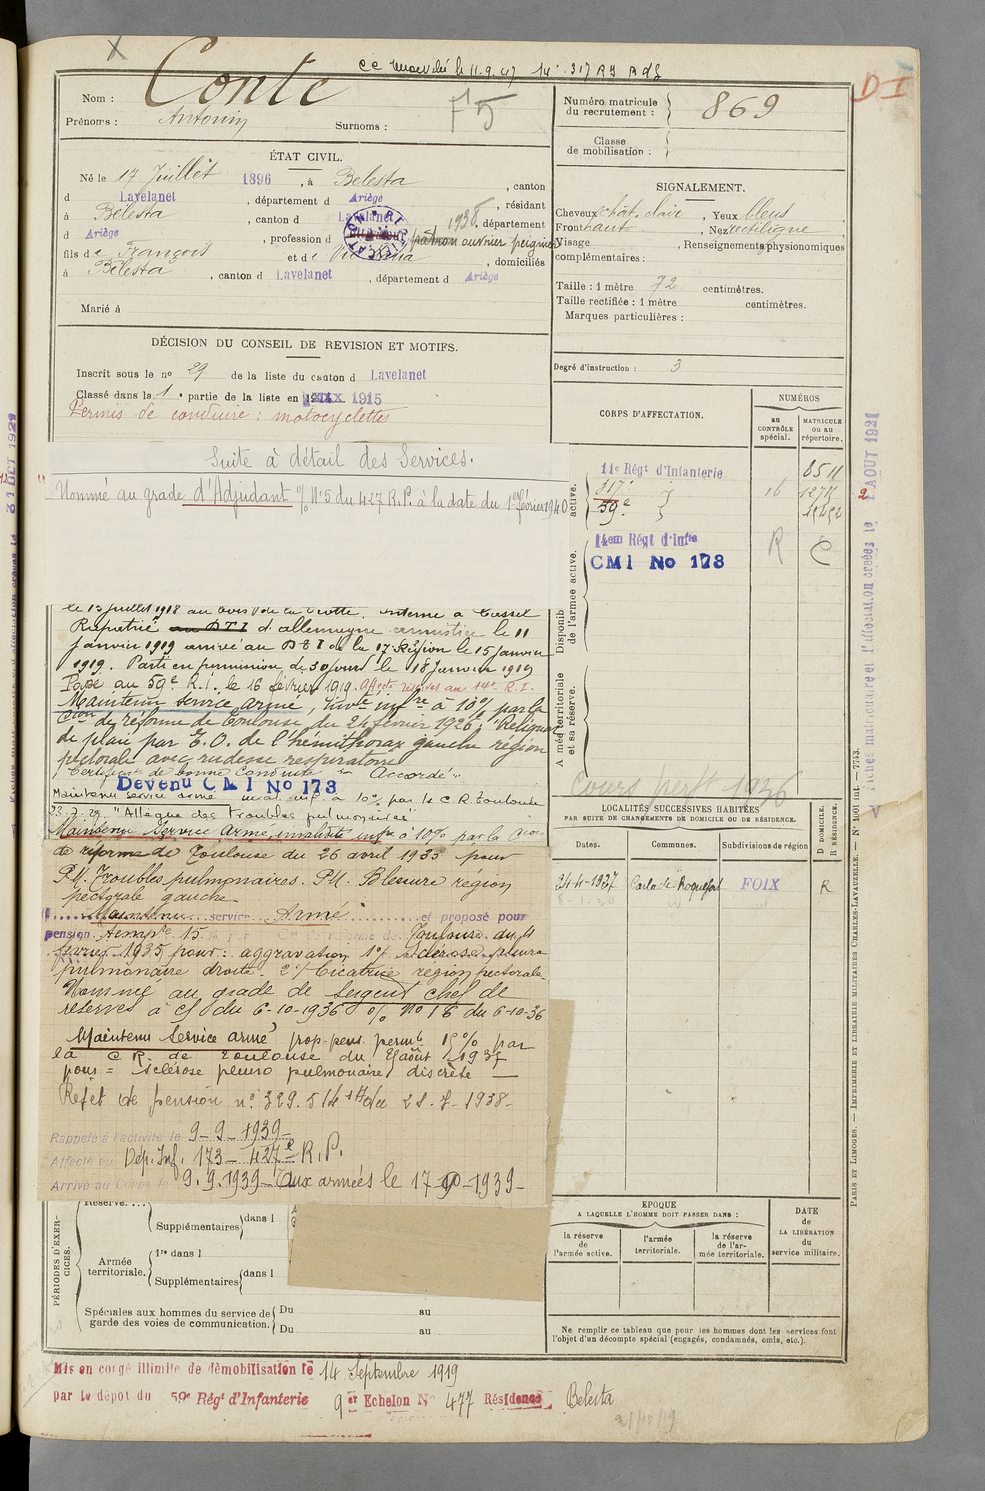 ce 11.9.47
Conte
Nom :
Prénoms : Antonin
Surnoms :
75
D I
Numéro matricule
du recrutement : 869
Classe
de mobilisation :
ÉTAT CIVIL.
Né le 17 Juillet 1896, à Belesta, canton
d Lavelanet, département d Ariège, résidant
à Belesta, canton d Lavelanet 1938, département
d Ariège, profession d patron ouvrier peignier
fils de François et de, domiciliés
à Belesta, canton d Lavelanet, département d Ariège
Marié à
SIGNALEMENT.
Cheveux chât. clair, Yeux bleus
Front haut, Nez rectiligne
Visage, Renseignements physionomiques
complémentaires :
Taille : 1 mètre 72 centimètres.
Taille rectifiée : 1 mètre centimètres.
Marques particulières :
Degré d'instruction : 3
DÉCISION DU CONSEIL DE REVISION ET MOTIFS.
Inscrit sous le no 29 de la liste du canton d Lavelanet
Classé dans la 1e partie de la liste en 1915
Permis de conduire : motocyclettes
Suite à détail des Services.
Nommé au grade d'Adjudant % No 5 du 427 R.P. à la date du 1er février 1940
le 15 juillet 1918 au bois de la interné à Cassel
Rapatrié au DTI d'allemagne armistice le 11
janvier 1919 arrivé au DTI de la 17e Région le 15 janvier
1919. Parti en permission de 30 jours le 18 Janvier 1919
Passé au 59e R.I. le 16 février 1919. Affecté réserves au 14e R.I.
Maintenu service armé, invté infre à 10% par la
Cion de réforme de Toulouse du 24 février 1926 : "Reliquat
de plaie par E.O. de l'hémithorax gauche région
pectorale avec rudesse respiratoire
Certificat de bonne Conduite "Accordé".
Devenu CMI No 173
Maintenu service armé inval. inf. à 10% par la C.R. Toulouse
23.7.29. "Allègue des troubles pulmonaires"
Maintenu Service Armé, invalidité infre à 10% par la Cion
de réforme de Toulouse du 26 avril 1933 pour
P.M. Troubles pulmonaires. P.M. Blessure région
pectorale gauche.
Maintenu service Armé et proposé pour
pension tempre 15 % par Toulouse du 4
février 1935 pour : aggravation 1°/ sclérose pleuro
pulmonaire droite. 2°/ Cicatrice région pectorale
Nommé au grade de sergent chef de
réserves à c/ du 6-10-1936 % No 16 du 6-10-36
Maintenu Service armé prop. pens. permte 15% par
la C.R. de Toulouse du août 1937
pour = sclérose pleuro pulmonaire discrète —
Rejet de pension no 329.514 du 28-7-1938-
Rappelé à l'activité le 9-9-1939-
Affecté au Dép. Inf. 173 - 427e R.P.
Arrivé au Corps le 9.9.1939 - Aux armées le 17-9-1939-
CORPS D'AFFECTATION.
NUMÉROS
au
CONTRÔLE
spécial.
MATRICULE
ou au
répertoire.
active.
11e Régt d'Infanterie 8511
317e 16 12711
59e
Disponib.
de l'armée active.
14em Régt d'Infie R
CMI No 173
Armée territoriale
et sa réserve.
Cours perft 1936
LOCALITÉS SUCCESSIVES HABITÉES
PAR SUITE DE CHANGEMENTS DE DOMICILE OU DE RÉSIDENCE.
Dates.
Communes.
Subdivisions de région
D DOMICILE.
R RÉSIDENCE.
24-4-1927 Carla de Roquefort FOIX R
PÉRIODES D'EXERCICES.
Réserve. . . .
Supplémentaires dans l
Armée
territoriale.
1re dans l
Supplémentaires dans l
Spéciales aux hommes du service de
garde des voies de communication.
Du au
Du au
EPOQUE
A LAQUELLE L'HOMME DOIT PASSER DANS :
la réserve
de
l'armée active.
l'armée
territoriale.
la réserve
de l'armée territoriale.
DATE
de
LA LIBÉRATION
du
service militaire.
Ne remplir ce tableau que pour les hommes dont les services font
l'objet d'un décompte spécial (engagés, condamnés, omis, etc.).
PARIS ET LIMOGES. — IMPRIMERIE ET LIBRAIRIE MILITAIRES CHARLES-LAVAUZELLE. — No 1001 int. — 7743.
Fiches matriculaire et d'affectation créées le 2 AOUT 1921
Mis en congé illimité de démobilisation le 14 Septembre 1919
par le dépot du 59e Régt d'Infanterie 9er Echelon No 477 Résidence Belesta